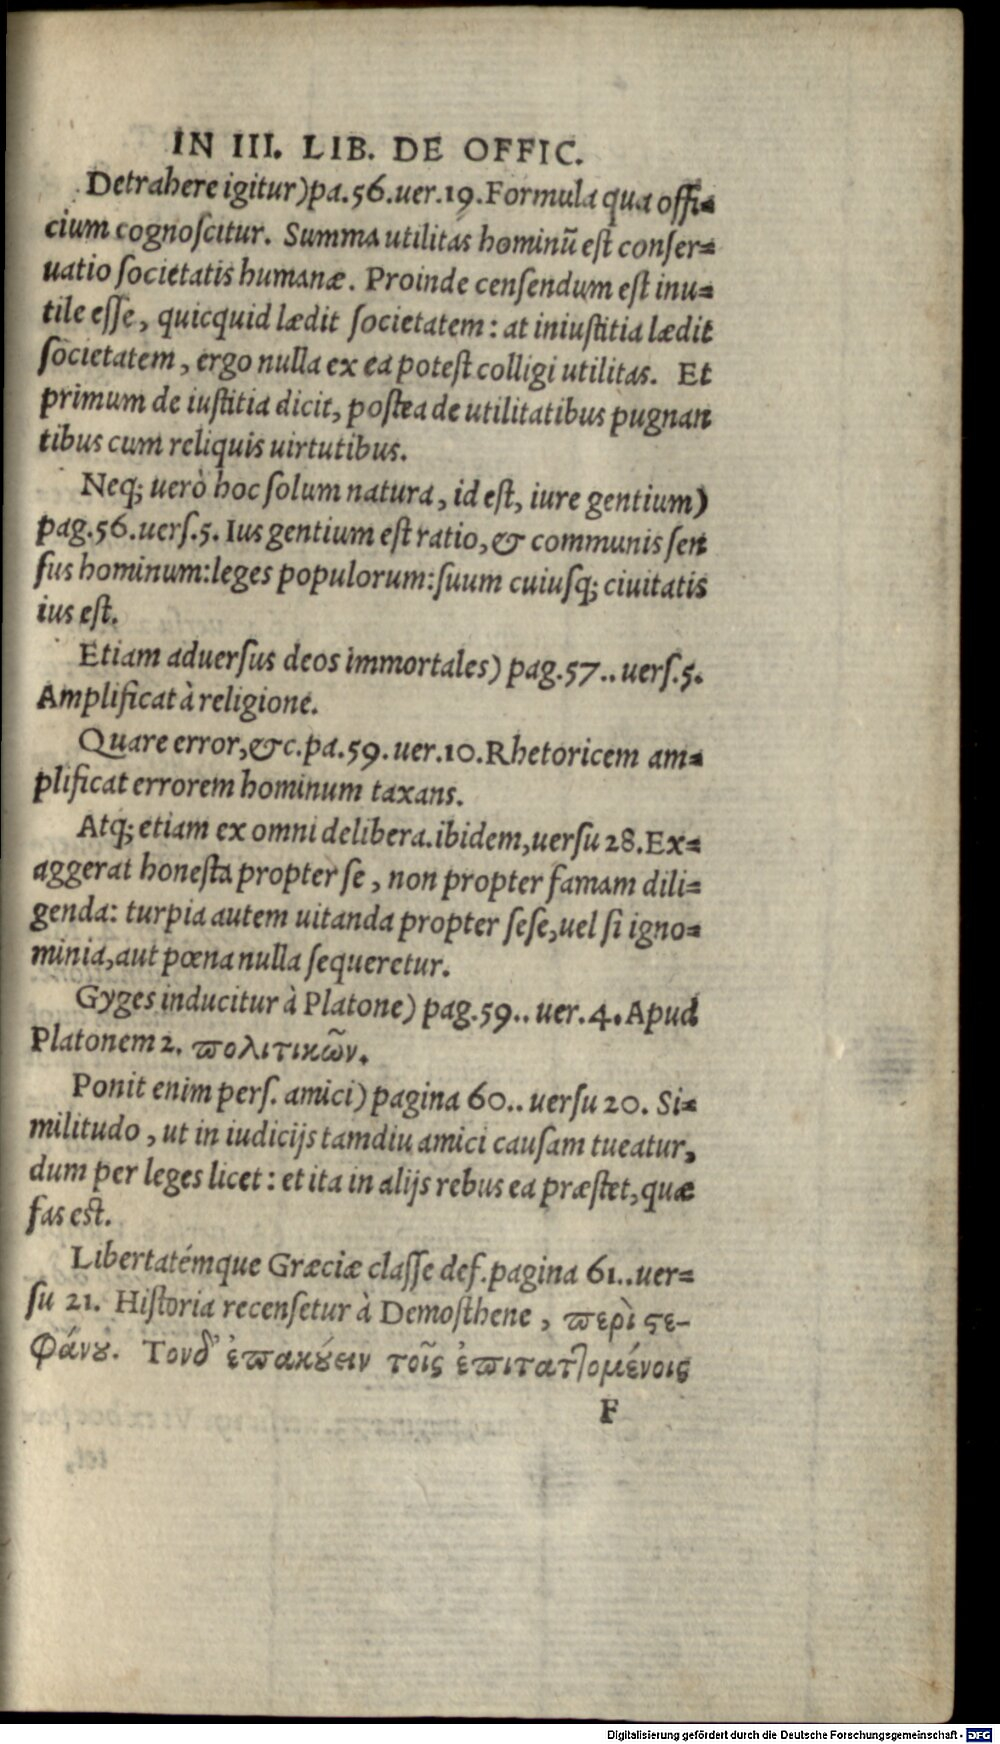 IN III. LIB. DE OFFIC.
Detrahere igitur)pa.56.uer.19.Formula qua offi=
cium cognoſcitur. Summa utilitas hominũ eſt conſer=
uatio ſocietatis humanæ. Proinde cenſendum eſt inu=
tile eſſe, quicquid lædit ſocietatem: at iniuſtitia lædit
ſocietatem, ergo nulla ex ea poteſt colligi utilitas. Et
primum de iuſtitia dicit, poſtea de utilitatibus pugnan
tibus cum reliquis uirtutibus.
Neq; uerò hoc ſolum natura, id eſt, iure gentium)
pag.56.uerſ.5. Ius gentium eſt ratio,& communis ſen
ſus hominum:leges populorum:ſuum cuiuſq; ciuitatis
ius eſt.
Etiam aduerſus deos immortales) pag.57..uerſ.5.
Amplificat à religione.
Quare error,&c.pa.59.uer.10.Rhetoricem am=
plificat errorem hominum taxans.
Atq; etiam ex omni delibera.ibidem,uerſu 28.Ex=
aggerat honeſta propter ſe, non propter famam dili=
genda: turpia autem uitanda propter ſeſe,uel ſi igno=
minia,aut pœna nulla ſequeretur.
Gyges inducitur à Platone) pag.59..uer.4.Apud
Platonem 2. ϖολιτικῶν.
Ponit enim perſ. amici) pagina 60..uerſu 20. Si=
militudo, ut in iudicijs tamdiu amici cauſam tueatur,
dum per leges licet: et ita in alijs rebus ea præſtet,quæ
fas eſt.
Libertatémque Græciæ claſſe def.pagina 61..uer=
ſu 21. Hiſtoria recenſetur à Demoſthene, ϖερὶ ϛε-
φάνȣ. Τονδ᾽ ἐϖακȣ́ειν τοῖς ἐϖιταττομένοις
F
Digitalisierung gefördert durch die Deutsche Forschungsgemeinschaft - DFG